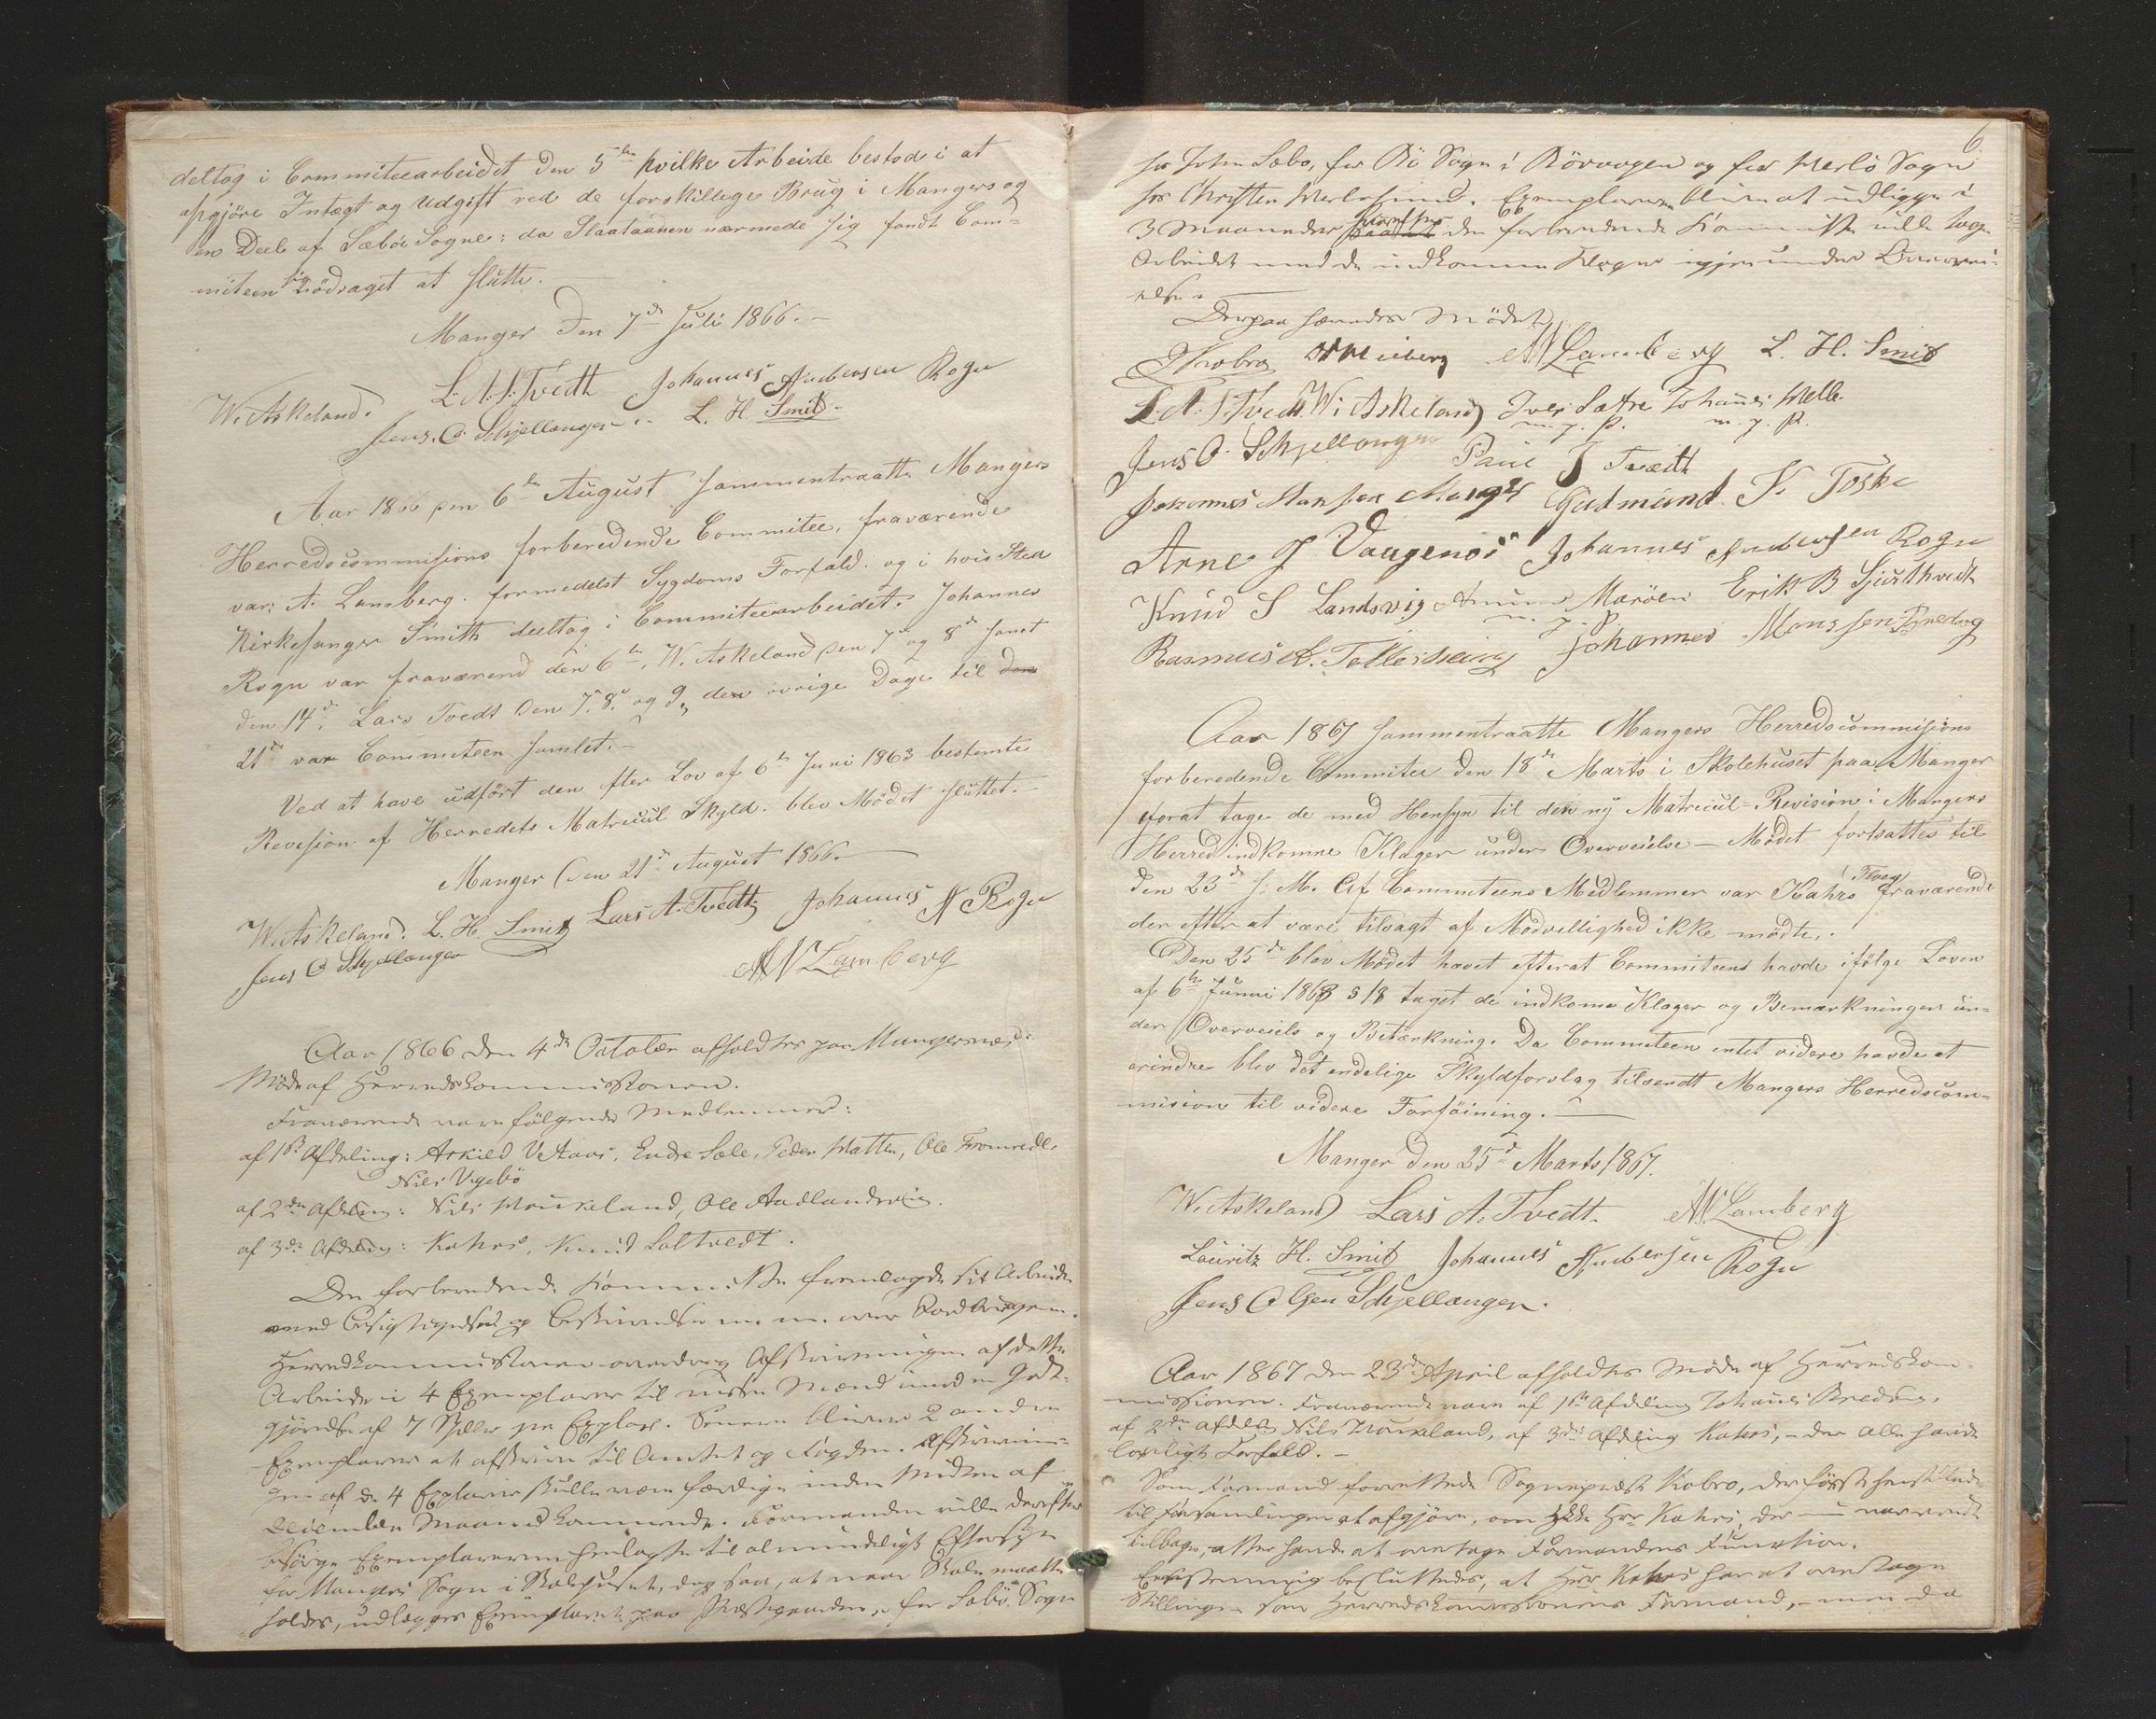 deltog i Commiteearbeidet den 5te hvilke Arbeide bestod i at
opgjöre Intægt og Udgift ved de forskillige Brug i Mangers og
en Deel af Sæbö Sogne; da Slaataanen nærmede sig fandt Com-
miteen sig nödsaget at slutte.
Manger den 7de Juli 1866.
W. Askeland. L. A. S. Tvedt Johannes Andersen Rogn
Jens. O. Schjellanger. L. H. Smith.
Aar 1866 den 6te August sammentraatte Mangers
Herredscommisions forberedende Commitee, fraværende
var: A. Lamberg. formedelst Sygdoms Forfald. og i hvis Sted
Kirkesanger Smith deeltog i Commiteearbeidet. Johannes
Rogn var fraværend den 6te, W. Askeland den 7de og 8de samt
den 14de, Lars Tvedt den 7. 8. og 9, den övrige Dage til den
21de var Commiteen samlet.
Ved at have udfört den efter Lov af 6te Juni 1863 bestemte
Revision af Herredets Matricul Skyld. blev Mödet sluttet.
Manger den 21de August 1866.
W. Askeland. L. H. Smith Lars A. Tvedt Johannes A Rogn
Jens O Schjellanger A N Lamberg
Aar 1866 den 4de October afholdtes paa Manger
Möde af Herredskommissionen.
Fraværende vare fölgende Medlemmer:
af 1ste Afdeling: Askild V Aaes, Endre Sæle, Peder Hatten, Ole Fromreide
Nils Vgebö
af 2den Afdeling: Nils Moukeland, Ole Aadlandsvig.
af 3die Afdeling: Kahrs, Knud Saltvedt.
Den forberedende Kommitte fremlagde sit Arbeide
med Besigtigelse og Beskrivelse m. m. over Jordbrugene.
Herredskommissionen overdrog Afskrivningen af dette
Arbeide i 4 Exemplarer til visse Mænd imod en Godt-
gjörelse af 7 Spdlr pr Explar. Senere blive 2 andre
Exemplarer at afskrive til Amtet og Fogden. Afskrivnin-
gen af de 4 Explarer skulle være færdige inden Midten af
December Maaned kommende. Formanden vilde derefter
besörge Exemplarerne henlagte til almindeligt Eftersyn
for Manger Sogn i Skolehuset, dog saa, at naar Skole maatte
holdes, udlægges Exemplaret paa Prestegaarden, for Sæbö Sogn
6.
hos John Sæbö, for Bö Sogn i Bövaagen og for Herlö Sogn
hos Christen Herlösund. Exemplarerne blive at udligge i
3 Maaneder hvorefter den forberedende Kommitte vilde tage
Arbeidet med de indkomne Klager igjen under Overvei-
else.
Derpaa hævedes Mödet
J Kobro A N Lamberg L. H. Smith
L. A. S. Tvedt W. Askeland Iver Sætre Johannes Helle
m. f. P. m. f. P.
Jens O. Schjellanger Paul J Tvedt
Johannes Hansen Manger Gudmund S. Toska
Arne J Vaagenös Johannes Andersen Rogn
Knud S Landsvig Amund Maröen Erik B Sjurthvedt
m. f. P.
Rasmus A. Johannes Monssen Bredvig
Aar 1867 sammentraatte Mangers Herredscommisions
forberedende Commitee den 18de Marts i Skolehuset paa Manger
forat tage de med Hensyn til den ny Matricul-Revision i Mangers
Herred indkomne Klager under Overveielse – Mödet fortsattes til
den 23de s. M. Af Commiteens Medlemmer var Kahrs fraværende
der efter at være tilsagt af Modvillighed ikke mödte.
Den 25de blev Mödet hævet efterat Commiteens havde ifölge Loven
af 6te Junni 1863 § 18 taget de indkomne Klager og Bemærkninger un-
der Overveiels og Betænkning. Da Commiteen intet videre havde at
erindre blev det endelige Skyldforslag tilsendt Mangers Herredscom-
mision til videre Forföining.
Manger den 25de Marts 1867.
W. Askeland Lars A. Tvedt. A N Lamberg
Lauritz H. Smith Johannes Andersen Rogn
Jens Olsen Schjellanger.
Aar 1867 den 23de April afholdtes Möde af Herredskom-
missionen. Fraværende vare af 1ste Afdeling Johannes Bredvig,
af 2den Afdeling Nils Moukeland, af 3die Afdeling Kahrs, – der alle havde
lovligt Forfald. –
Som Formand forrettede Sogneprest Kobro, der först henstillede
til Forsamlingen at afgjöre, om Hr. Kahrs, der nu var vendt
tilbage, atter havde at overtage Formandens Funktion.
Enstemmig besluttedes, at Herr Kahrs har at overtage
Stillingen som Herredskommissionens Formand, – men da